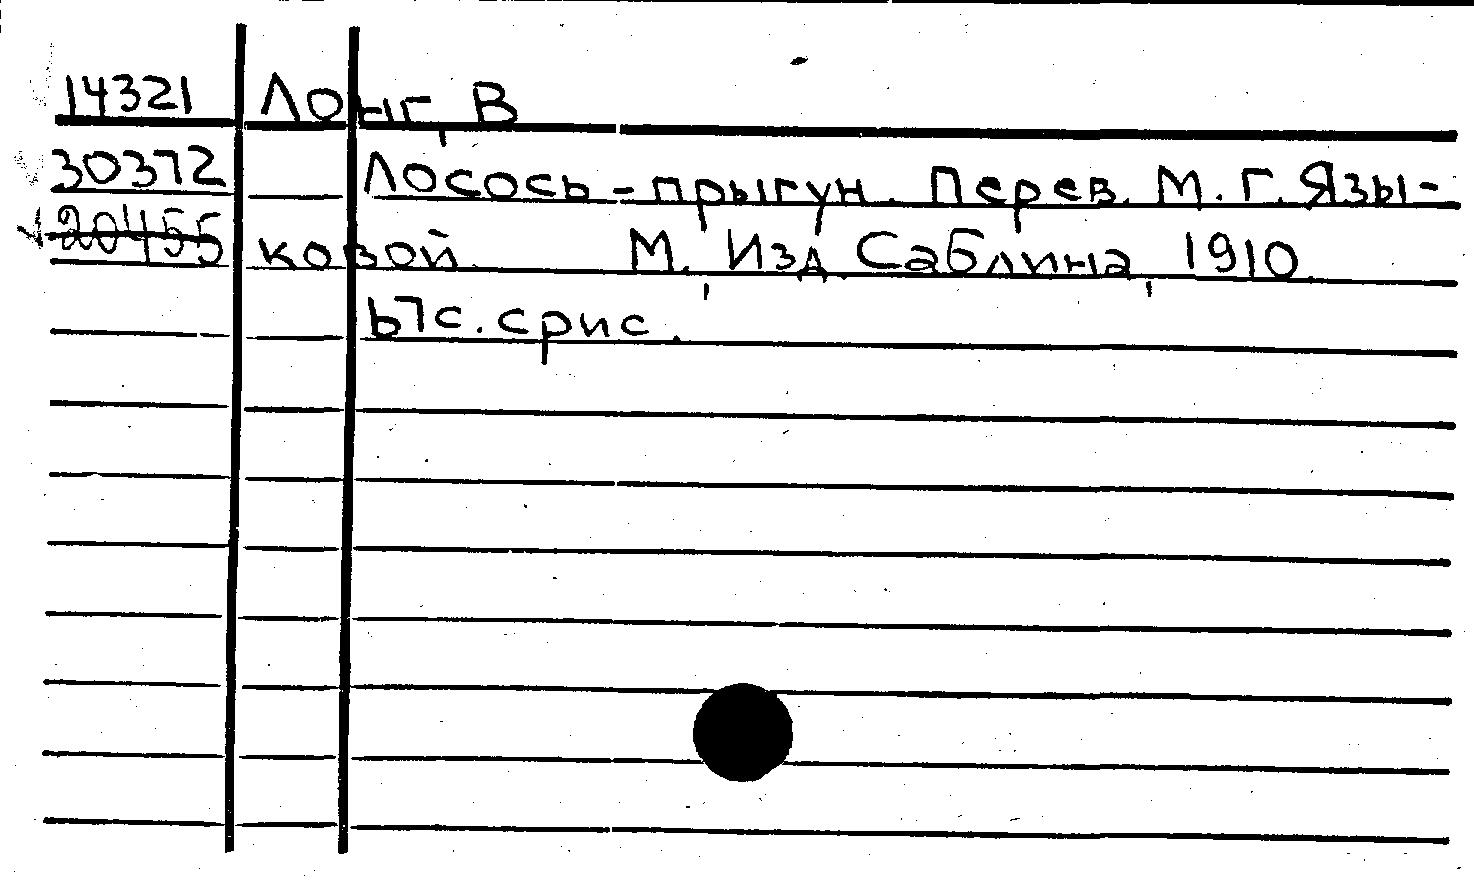 14321 Лонг, В
30372 Лосось-прыгун. Перев. М. Г. Язы-
20455 ковой. М., Изд. Саблина, 1910.
67с. срис.